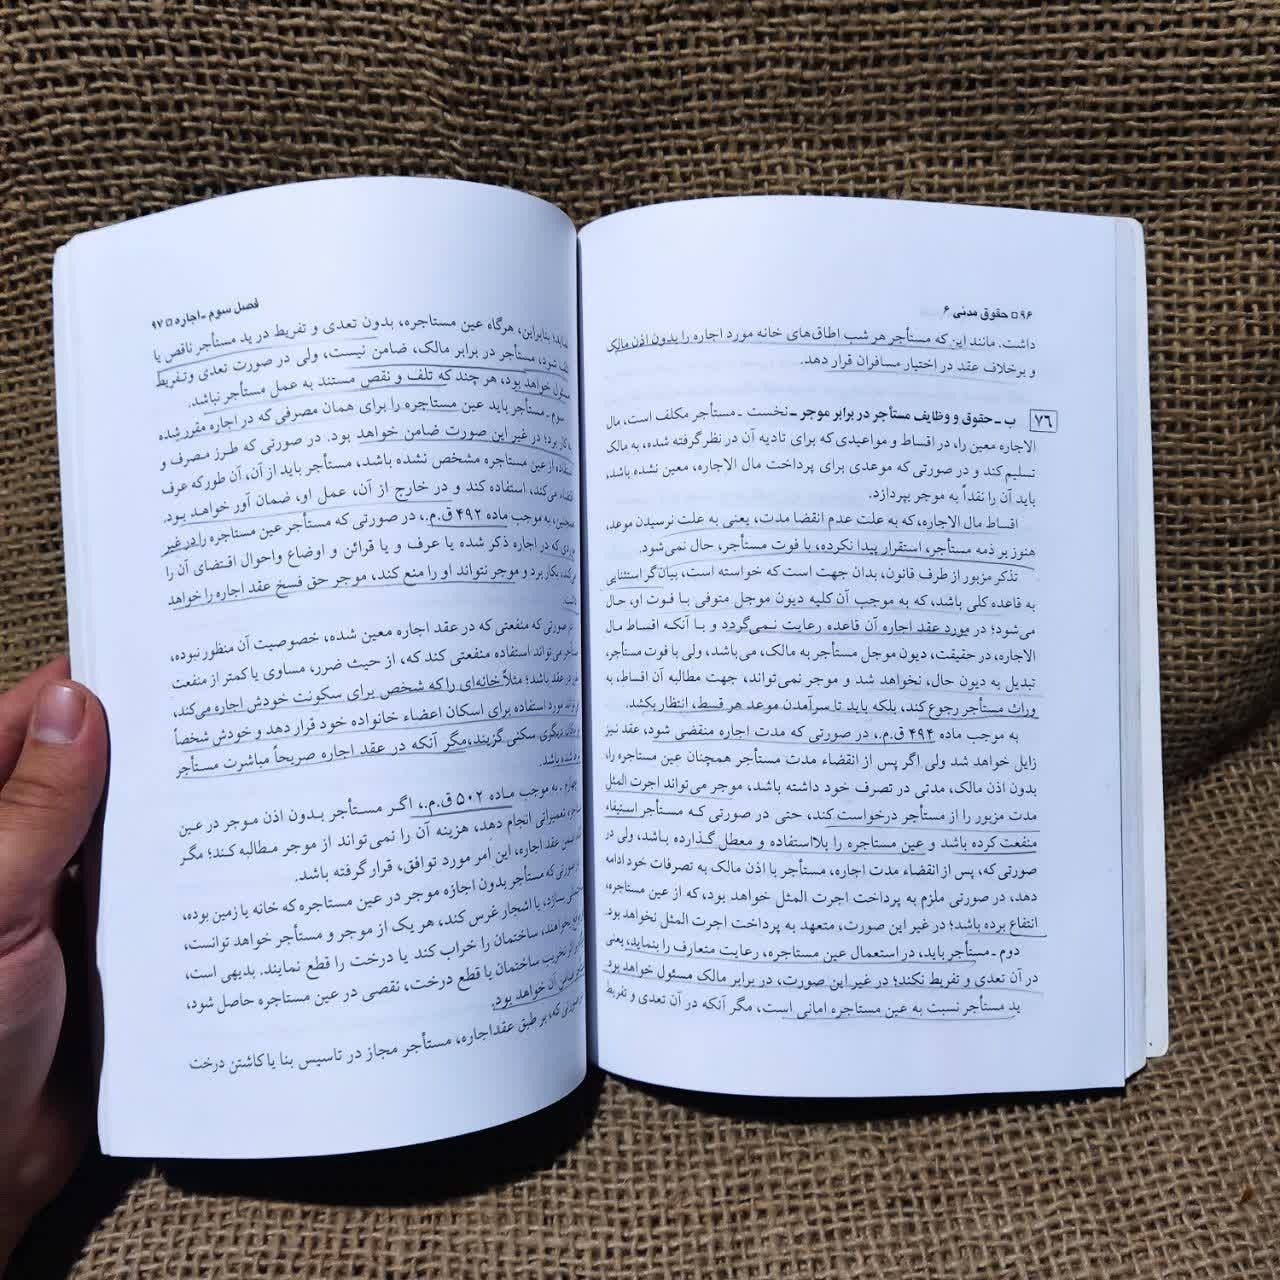 ۹۶ □ حقوق مدنی ۶
داشت. مانند این که مستأجر هر شب اطاق‌های خانه مورد اجاره را بدون اذن مالک
و برخلاف عقد در اختیار مسافران قرار دهد.
۷۶ ب ـ حقوق و وظایف مستأجر در برابر موجر ـ نخست ـ مستأجر مکلف است، مال
الاجاره معین را، در اقساط و مواعیدی که برای تادیه آن در نظر گرفته شده، به مالک
تسلیم کند و در صورتی که موعدی برای پرداخت مال الاجاره، معین نشده باشد،
باید آن را نقداً به موجر بپردازد.
اقساط مال الاجاره، که به علت عدم انقضا مدت، یعنی به علت نرسیدن موعد،
هنوز بر ذمه مستأجر، استقرار پیدا نکرده، با فوت مستأجر، حال نمی‌شود.
تذکر مزبور از طرف قانون، بدان جهت است که خواسته است، بیان‌گر استثنایی
به قاعده کلی باشد، که به موجب آن کلیه دیون موجل متوفی با فوت او، حال
می‌شود؛ در مورد عقد اجاره آن قاعده رعایت نمی‌گردد و با آنکه اقساط مال
الاجاره، در حقیقت، دیون موجل مستأجر به مالک، می‌باشد، ولی با فوت مستأجر،
تبدیل به دیون حال، نخواهد شد و موجر نمی‌تواند، جهت مطالبه آن اقساط، به
وراث مستأجر رجوع کند، بلکه باید تا سرآمدن موعد هر قسط، انتظار بکشد.
به موجب ماده ۴۹۴ ق.م.، در صورتی که مدت اجاره منقضی شود، عقد نیز
زایل خواهد شد ولی اگر پس از انقضاء مدت مستأجر همچنان عین مستاجره را،
بدون اذن مالک، مدتی در تصرف خود داشته باشد، موجر می‌تواند اجرت المثل
مدت مزبور را از مستأجر درخواست کند، حتی در صورتی که مستأجر استیفاء
منفعت کرده باشد و عین مستاجره را بلااستفاده و معطل گذارده باشد، ولی در
صورتی که، پس از انقضاء مدت اجاره، مستأجر با اذن مالک به تصرفات خود ادامه
دهد، در صورتی ملزم به پرداخت اجرت المثل خواهد بود، که از عین مستاجره،
انتفاع برده باشد؛ در غیر این صورت، متعهد به پرداخت اجرت المثل نخواهد بود.
دوم ـ مستأجر باید، در استعمال عین مستاجره، رعایت متعارف را بنماید، یعنی
در آن تعدی و تفریط نکند؛ در غیر این صورت، در برابر مالک مسئول خواهد بود
ید مستأجر نسبت به عین مستاجره امانی است، مگر آنکه در آن تعدی و تفریط
فصل سوم ـ اجاره □ ۹۷
نماید؛ بنابراین، هرگاه عین مستاجره، بدون تعدی و تفریط در ید مستأجر ناقص یا
تلف شود، مستأجر در برابر مالک، ضامن نیست، ولی در صورت تعدی و تفریط
مسئول خواهد بود، هر چند که تلف و نقص مستند به عمل مستأجر نباشد.
سوم ـ مستأجر باید عین مستاجره را برای همان مصرفی که در اجاره مقرر شده
به کار برد؛ در غیر این صورت ضامن خواهد بود. در صورتی که طرز مصرف و
استفاده از عین مستاجره مشخص نشده باشد، مستأجر باید از آن، آن طور که عرف
اقتضاء می‌کند، استفاده کند و در خارج از آن، عمل او، ضمان آور خواهد بود.
همچنین، به موجب ماده ۴۹۲ ق.م.، در صورتی که مستأجر عین مستاجره را در غیر
موردی که در اجاره ذکر شده یا عرف و یا قرائن و اوضاع واحوال اقتضای آن را
می‌کند، بکار برد و موجر نتواند او را منع کند، موجر حق فسخ عقد اجاره را خواهد
داشت.
در صورتی که منفعتی که در عقد اجاره معین شده، خصوصیت آن منظور نبوده،
مستأجر می‌تواند استفاده منفعتی کند که، از حیث ضرر، مساوی یا کمتر از منفعت
در عقد باشد؛ مثلاً خانه‌ای را که شخص برای سکونت خودش اجاره می‌کند،
می‌تواند مورد استفاده برای اسکان اعضاء خانواده خود قرار دهد و خودش شخصاً
دیگری سکنی گزیند، مگر آنکه در عقد اجاره صریحاً مباشرت مستأجر
شده باشد.
چهارم ـ به موجب ماده ۵۰۲ ق.م.، اگر مستأجر بدون اذن موجر در عین
مستاجره تعمیراتی انجام دهد، هزینه آن را نمی‌تواند از موجر مطالبه کند؛ مگر
ضمن عقد اجاره، این امر مورد توافق، قرار گرفته باشد.
در صورتی که مستأجر بدون اجازه موجر در عین مستاجره که خانه یا زمین بوده،
بسازد، یا اشجار غرس کند، هر یک از موجر و مستأجر خواهد توانست،
بخواهند، ساختمان را خراب کند یا درخت را قطع نمایند. بدیهی است،
اگر تخریب ساختمان یا قطع درخت، نقصی در عین مستاجره حاصل شود،
ضامن آن خواهد بود.
در صورتی که، بر طبق عقد اجاره، مستأجر مجاز در تاسیس بنا یا کاشتن درخت